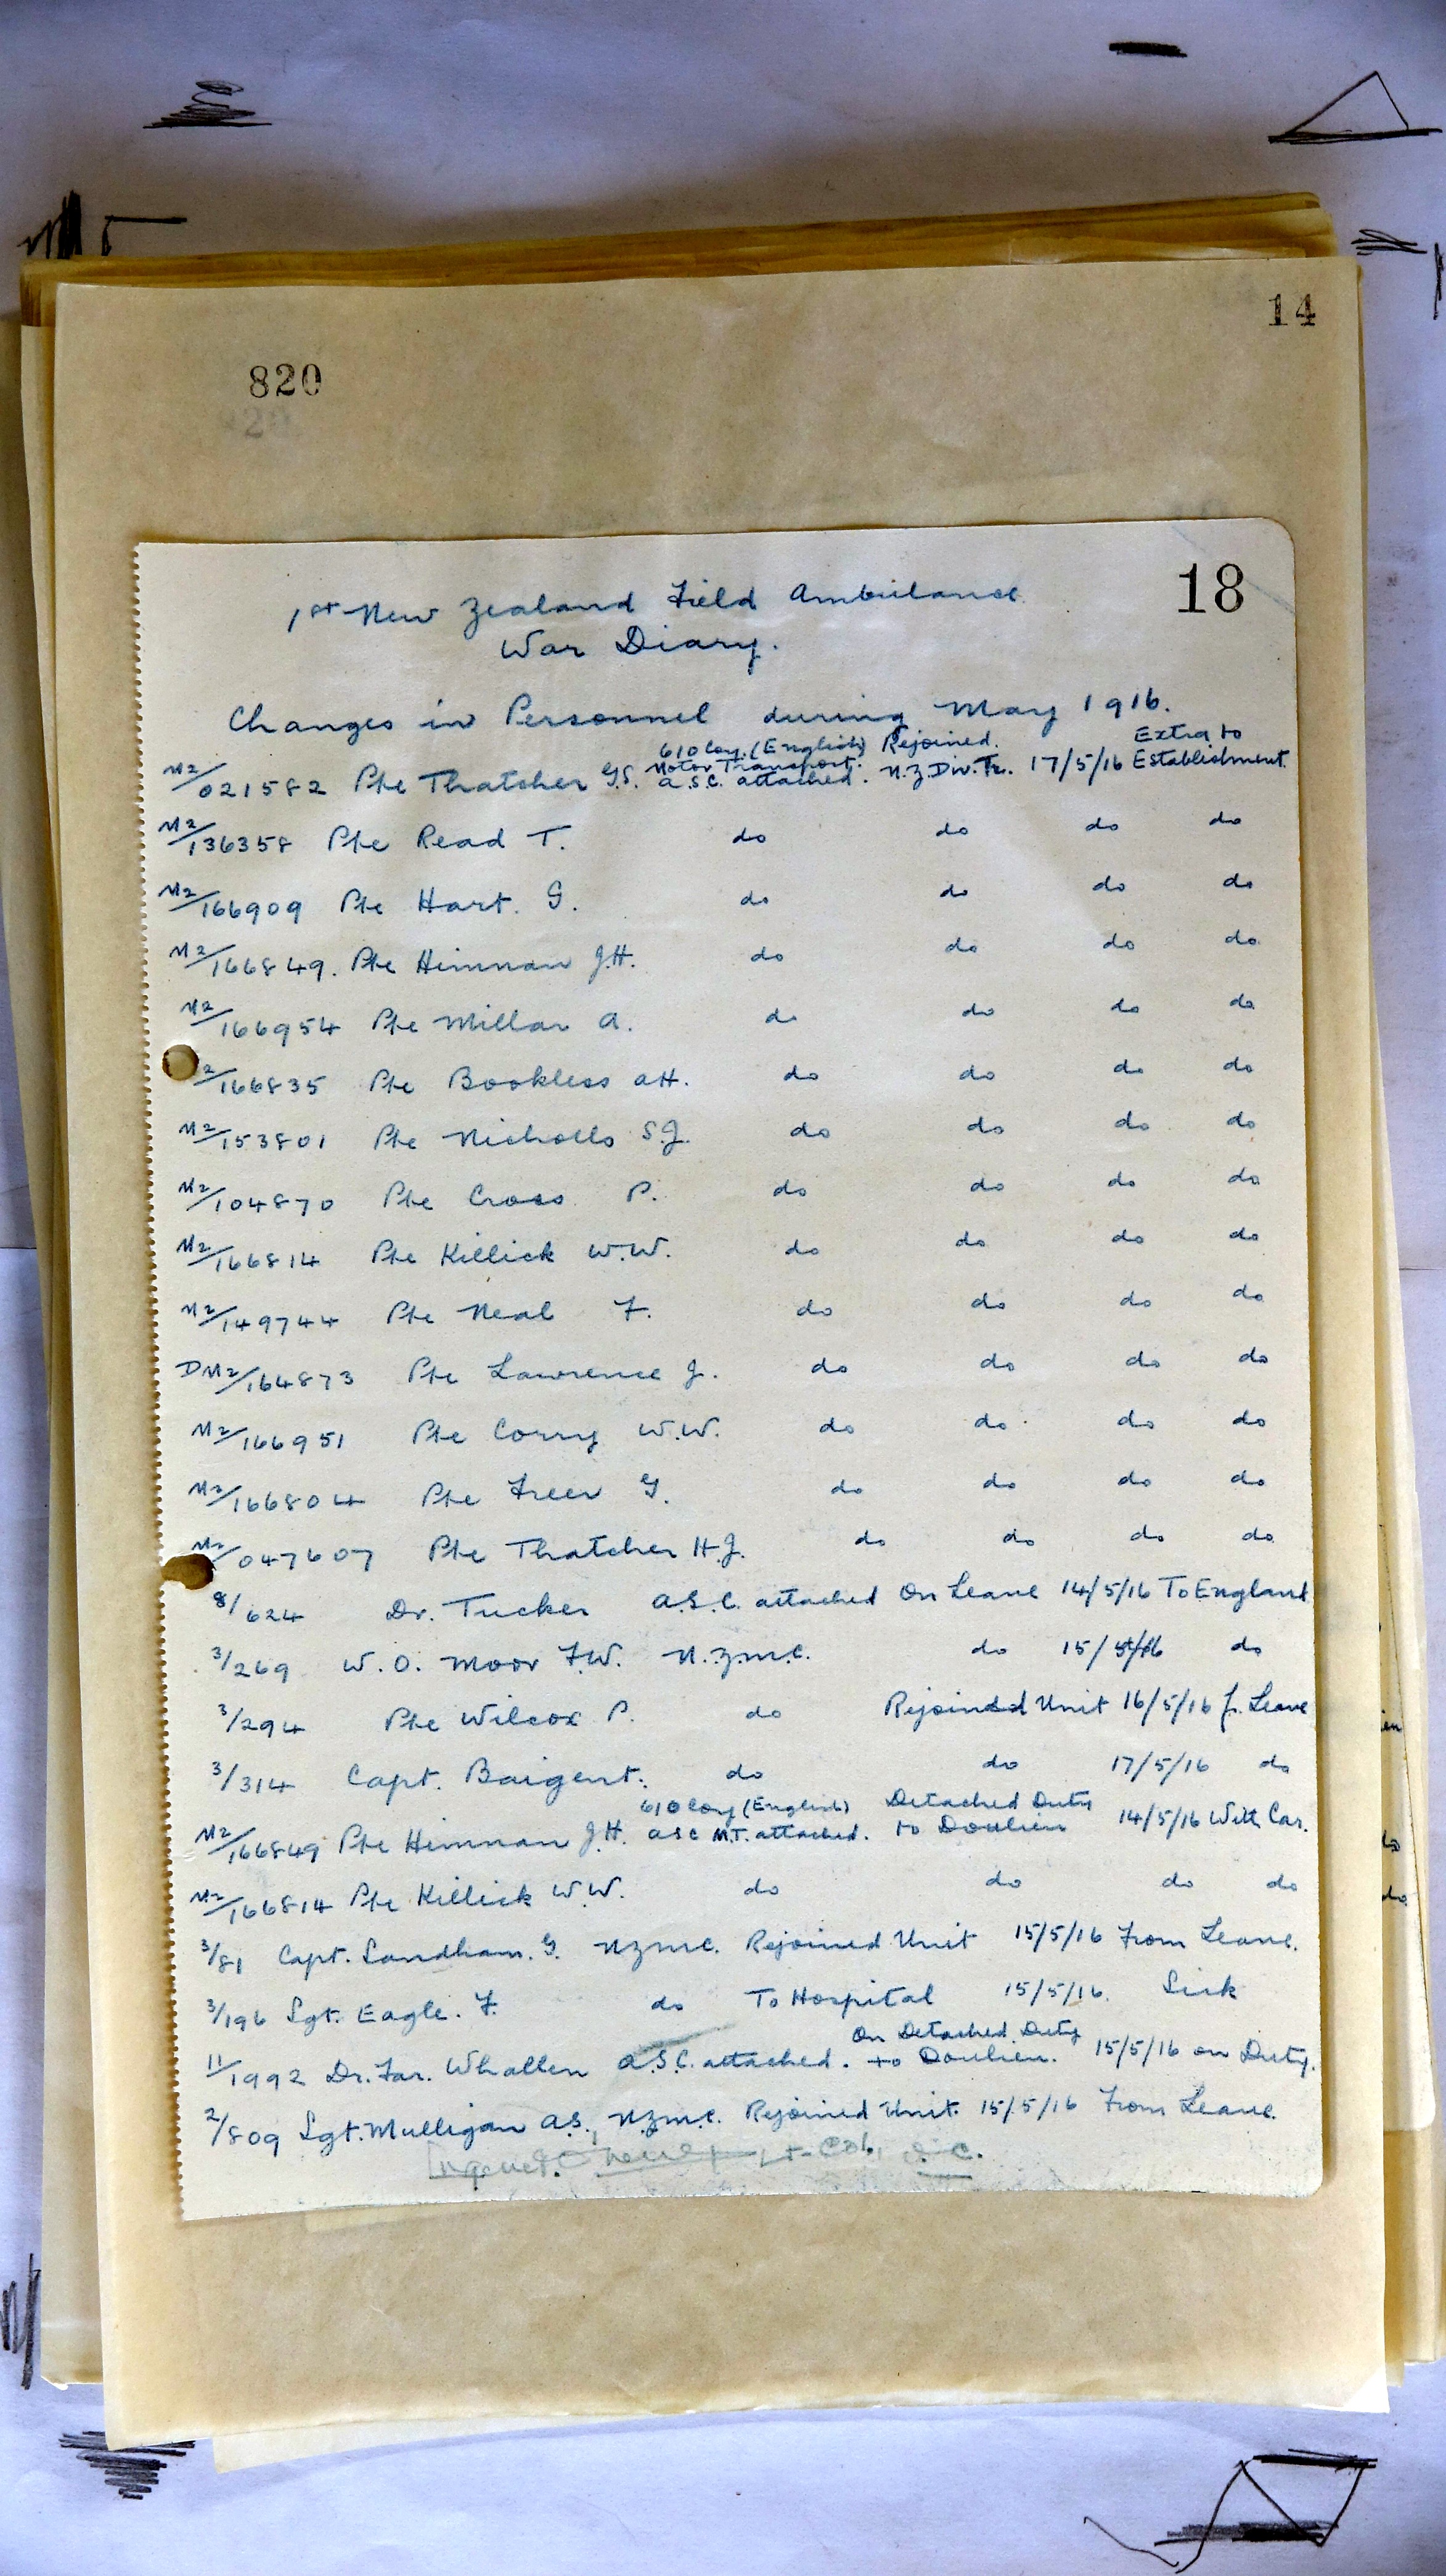 14
820
18
1st New Zealand Field Ambulance
War Diary.
Changes in Personnel during May 1916.
M2/021582 Pte Thatcher G.S. 610 Coy. (English) Motor Transport. A.S.C. attached. Rejoined. N.Z. Div. Tr. 17/5/16 Extra to Establishment.
M2/136358 Pte Read T. do do do do
M2/166909 Pte Hart. G. do do do do
M2/166849. Pte Hinman J.H. do do do do
M2/166954 Pte Millar A. do do do do
2/166835 Pte Bookless A.H. do do do do
M2/153801 Pte Nicholls S.J. do do do do
M2/104870 Pte Cross P. do do do do
M2/166814 Pte Killick W.W. do do do do
M2/149744 Pte Neal F. do do do do
DM2/164873 Pte Lawrence J. do do do do
M2/166951 Pte Corry W.W. do do do do
M2/166804 Pte Freer G. do do do do
M2/047607 Pte Thatcher H.J. do do do do
8/624 Dr. Tucker A.S.C. attached On Leave 14/5/16 To England
3/269 W.O. Moor F.W. N.Z.M.C. do 15/5/16 do
3/294 Pte Wilcox P. do Rejoined Unit 16/5/16 f. Leave
3/314 Capt. Baigent. do do 17/5/16 do
M2/166849 Pte Hinman J.H. 610 Coy (English) ASC M.T. attached. Detached Duty to Doulieu 14/5/16 With Car.
M2/166814 Pte Killick W.W. do do do do
3/81 Capt. Sandham. G. NZMC. Rejoined Unit 15/5/16 From Leave.
3/196 Sgt. Eagle. F. do To Hospital 15/5/16. Sick
11/1992 Dr. Far. Whallen A.S.C. attached. On Detached Duty to Doulieu. 15/5/16 on Duty.
2/809 Sgt. Mulligan A.S., NZMC. Rejoined Unit. 15/5/16 From Leave.
Lt-Col. O.C.